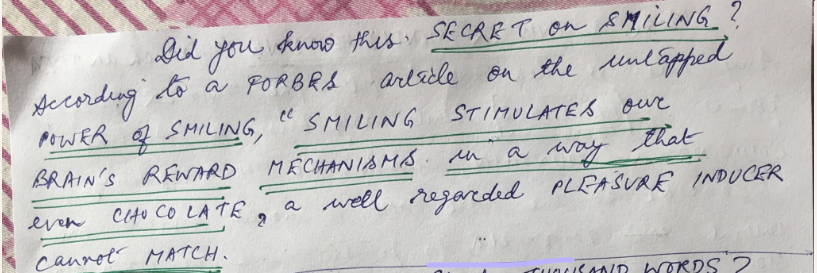 Did you know this. SECRET on SMILING ?
According to a FORBES article on the untapped
POWER of SMILING, "SMILING STIMULATES our
BRAIN'S REWARD MECHANISMS in a way that
even CHOCOLATE, a well regarded PLEASURE INDUCER
cannot MATCH.
THOUSAND WORDS ?